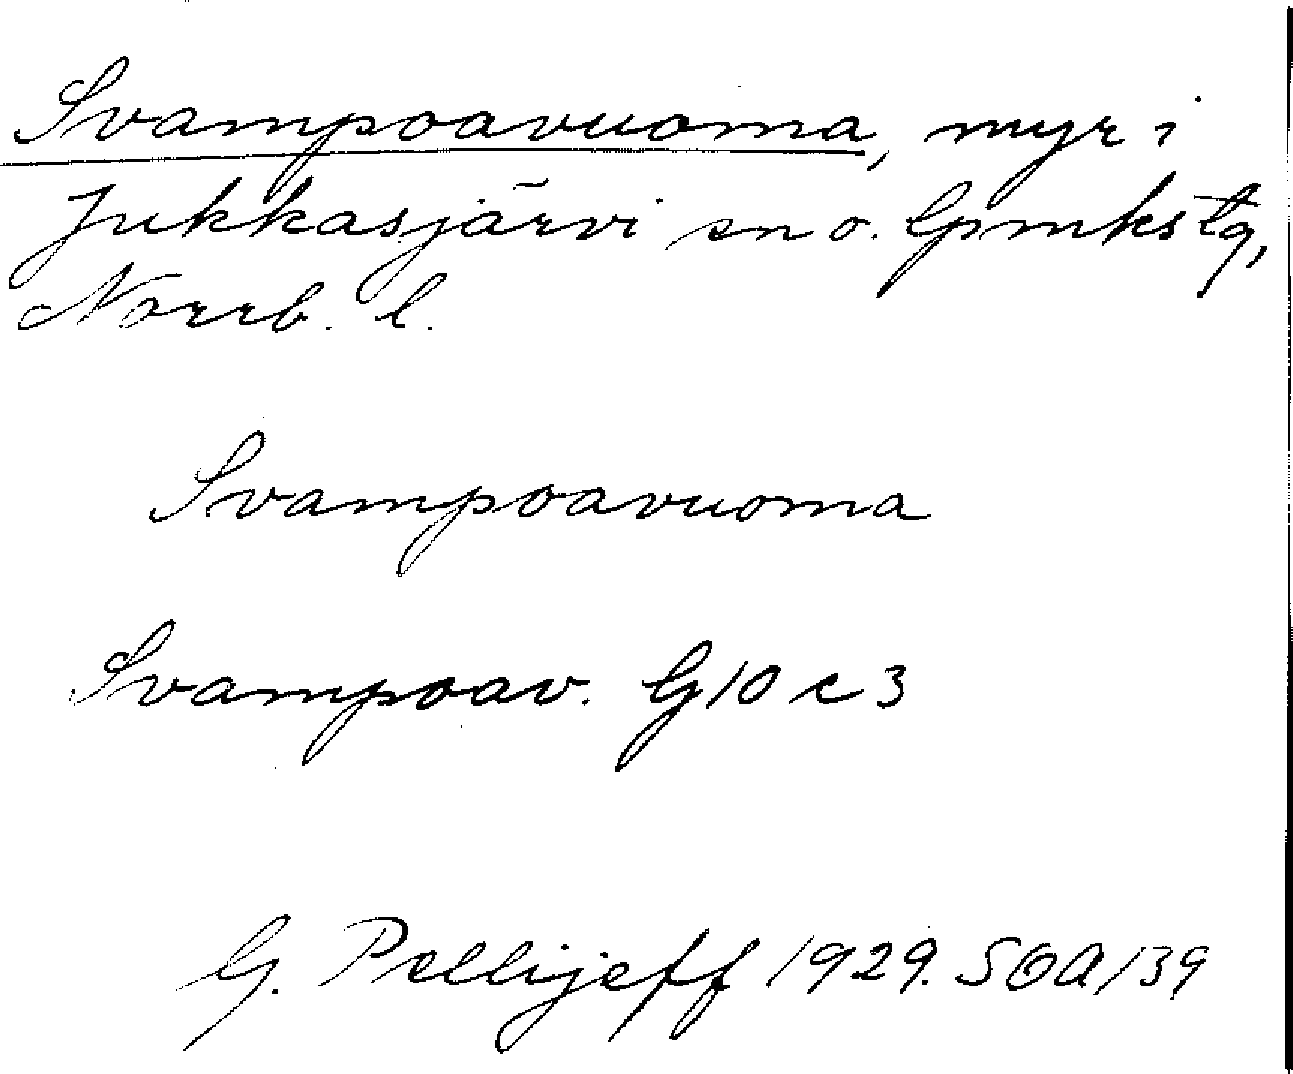 Svampoavuoma, myr i
Jukkasjärvi sn o. lpmkstg,
Norrb. l.
Svampoavuoma
Svampoav. G10 c 3
G. Pellijeff 1929. SOA 139